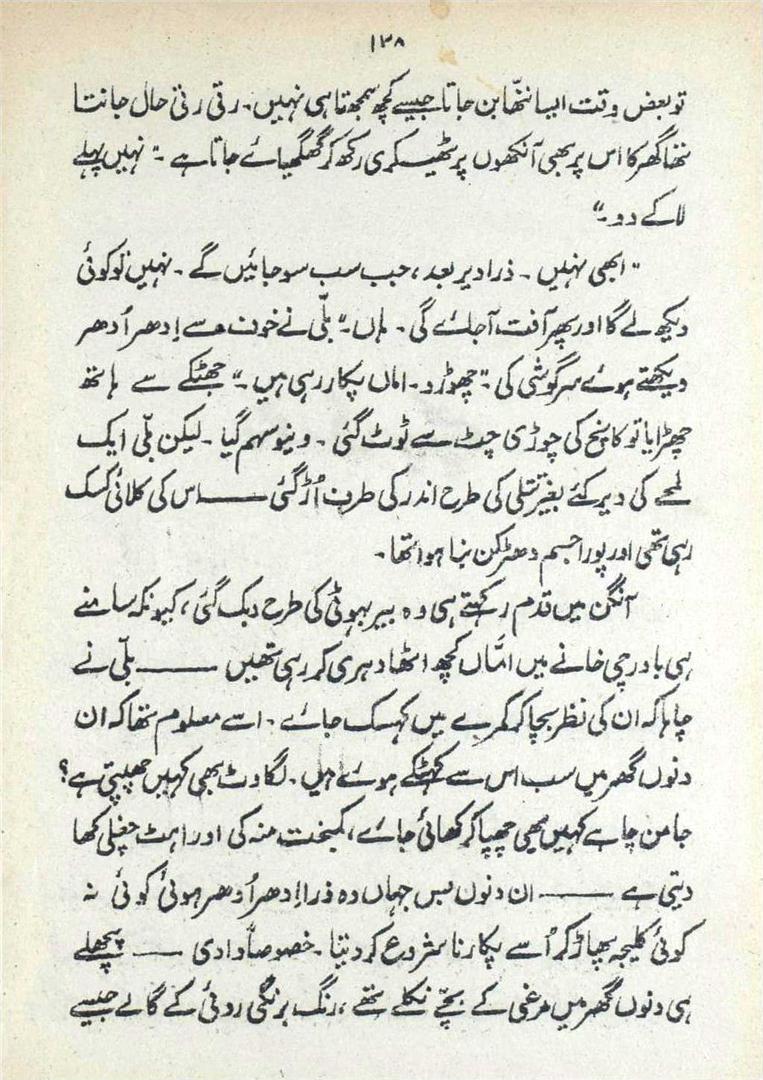 ۱۳۸
تو بعض وقت ایسا ننھّا بن جاتا جیسے کچھ سمجھتا ہی نہیں۔ رتی رتی حال جانتا
تھا گھر کا اس پر بھی آنکھوں پر ٹھیکری رکھ کر گھگھیائے جاتا ہے۔ "نہیں پہلے
لا کے دو۔"
"ابھی نہیں۔ ذرا دیر بعد، جب سب سو جائیں گے۔ نہیں تو کوئی
دیکھ لے گا اور پھر آفت آ جائے گی۔ ہاں۔" بلّی نے خوف سے اِدھر اُدھر
دیکھتے ہوئے سرگوشی کی۔ "چھوڑ دو۔ اماں پکار رہی ہیں۔" جھٹکے سے ہاتھ
چھڑایا تو کانچ کی چوڑی چٹ سے ٹوٹ گئی۔ ونیو سہم گیا۔ لیکن بلّی ایک
لمحے کی دیر کئے بغیر تتلی کی طرح اندر کی طرف اُڑ گئی —— اس کی کلائی کسک
رہی تھی اور پورا جسم دھڑکن بنا ہوا تھا۔
آنگن میں قدم رکھتے ہی وہ بیر بہوٹی کی طرح دبک گئی، کیونکہ سامنے
ہی باورچی خانے میں امّاں کچھ اٹھا دہری کر رہی تھیں —— بلّی نے
چاہا کہ ان کی نظر بچا کر کمرے میں کہسک جائے۔ اسے معلوم تھا کہ ان
دنوں گھر میں سب اس سے کھٹکے ہوئے ہیں۔ لگاوٹ بھی کہیں چھپتی ہے؟
جامن چاہے کہیں بھی چھپا کر کھائی جائے، کمبخت منہ کی اوراہٹ چغلی کھا
دیتی ہے —— ان دنوں میں جہاں وہ ذرا اِدھر اُدھر ہوئی کوئی نہ
کوئی کلیجہ پھاڑ کر اُسے پکارنا شروع کر دیتا۔ خصوصاً دادی —— پچھلے
ہی دنوں گھر میں مرغی کے بچّے نکلے تھے، رنگ برنگی روئی کے گالے جیسے